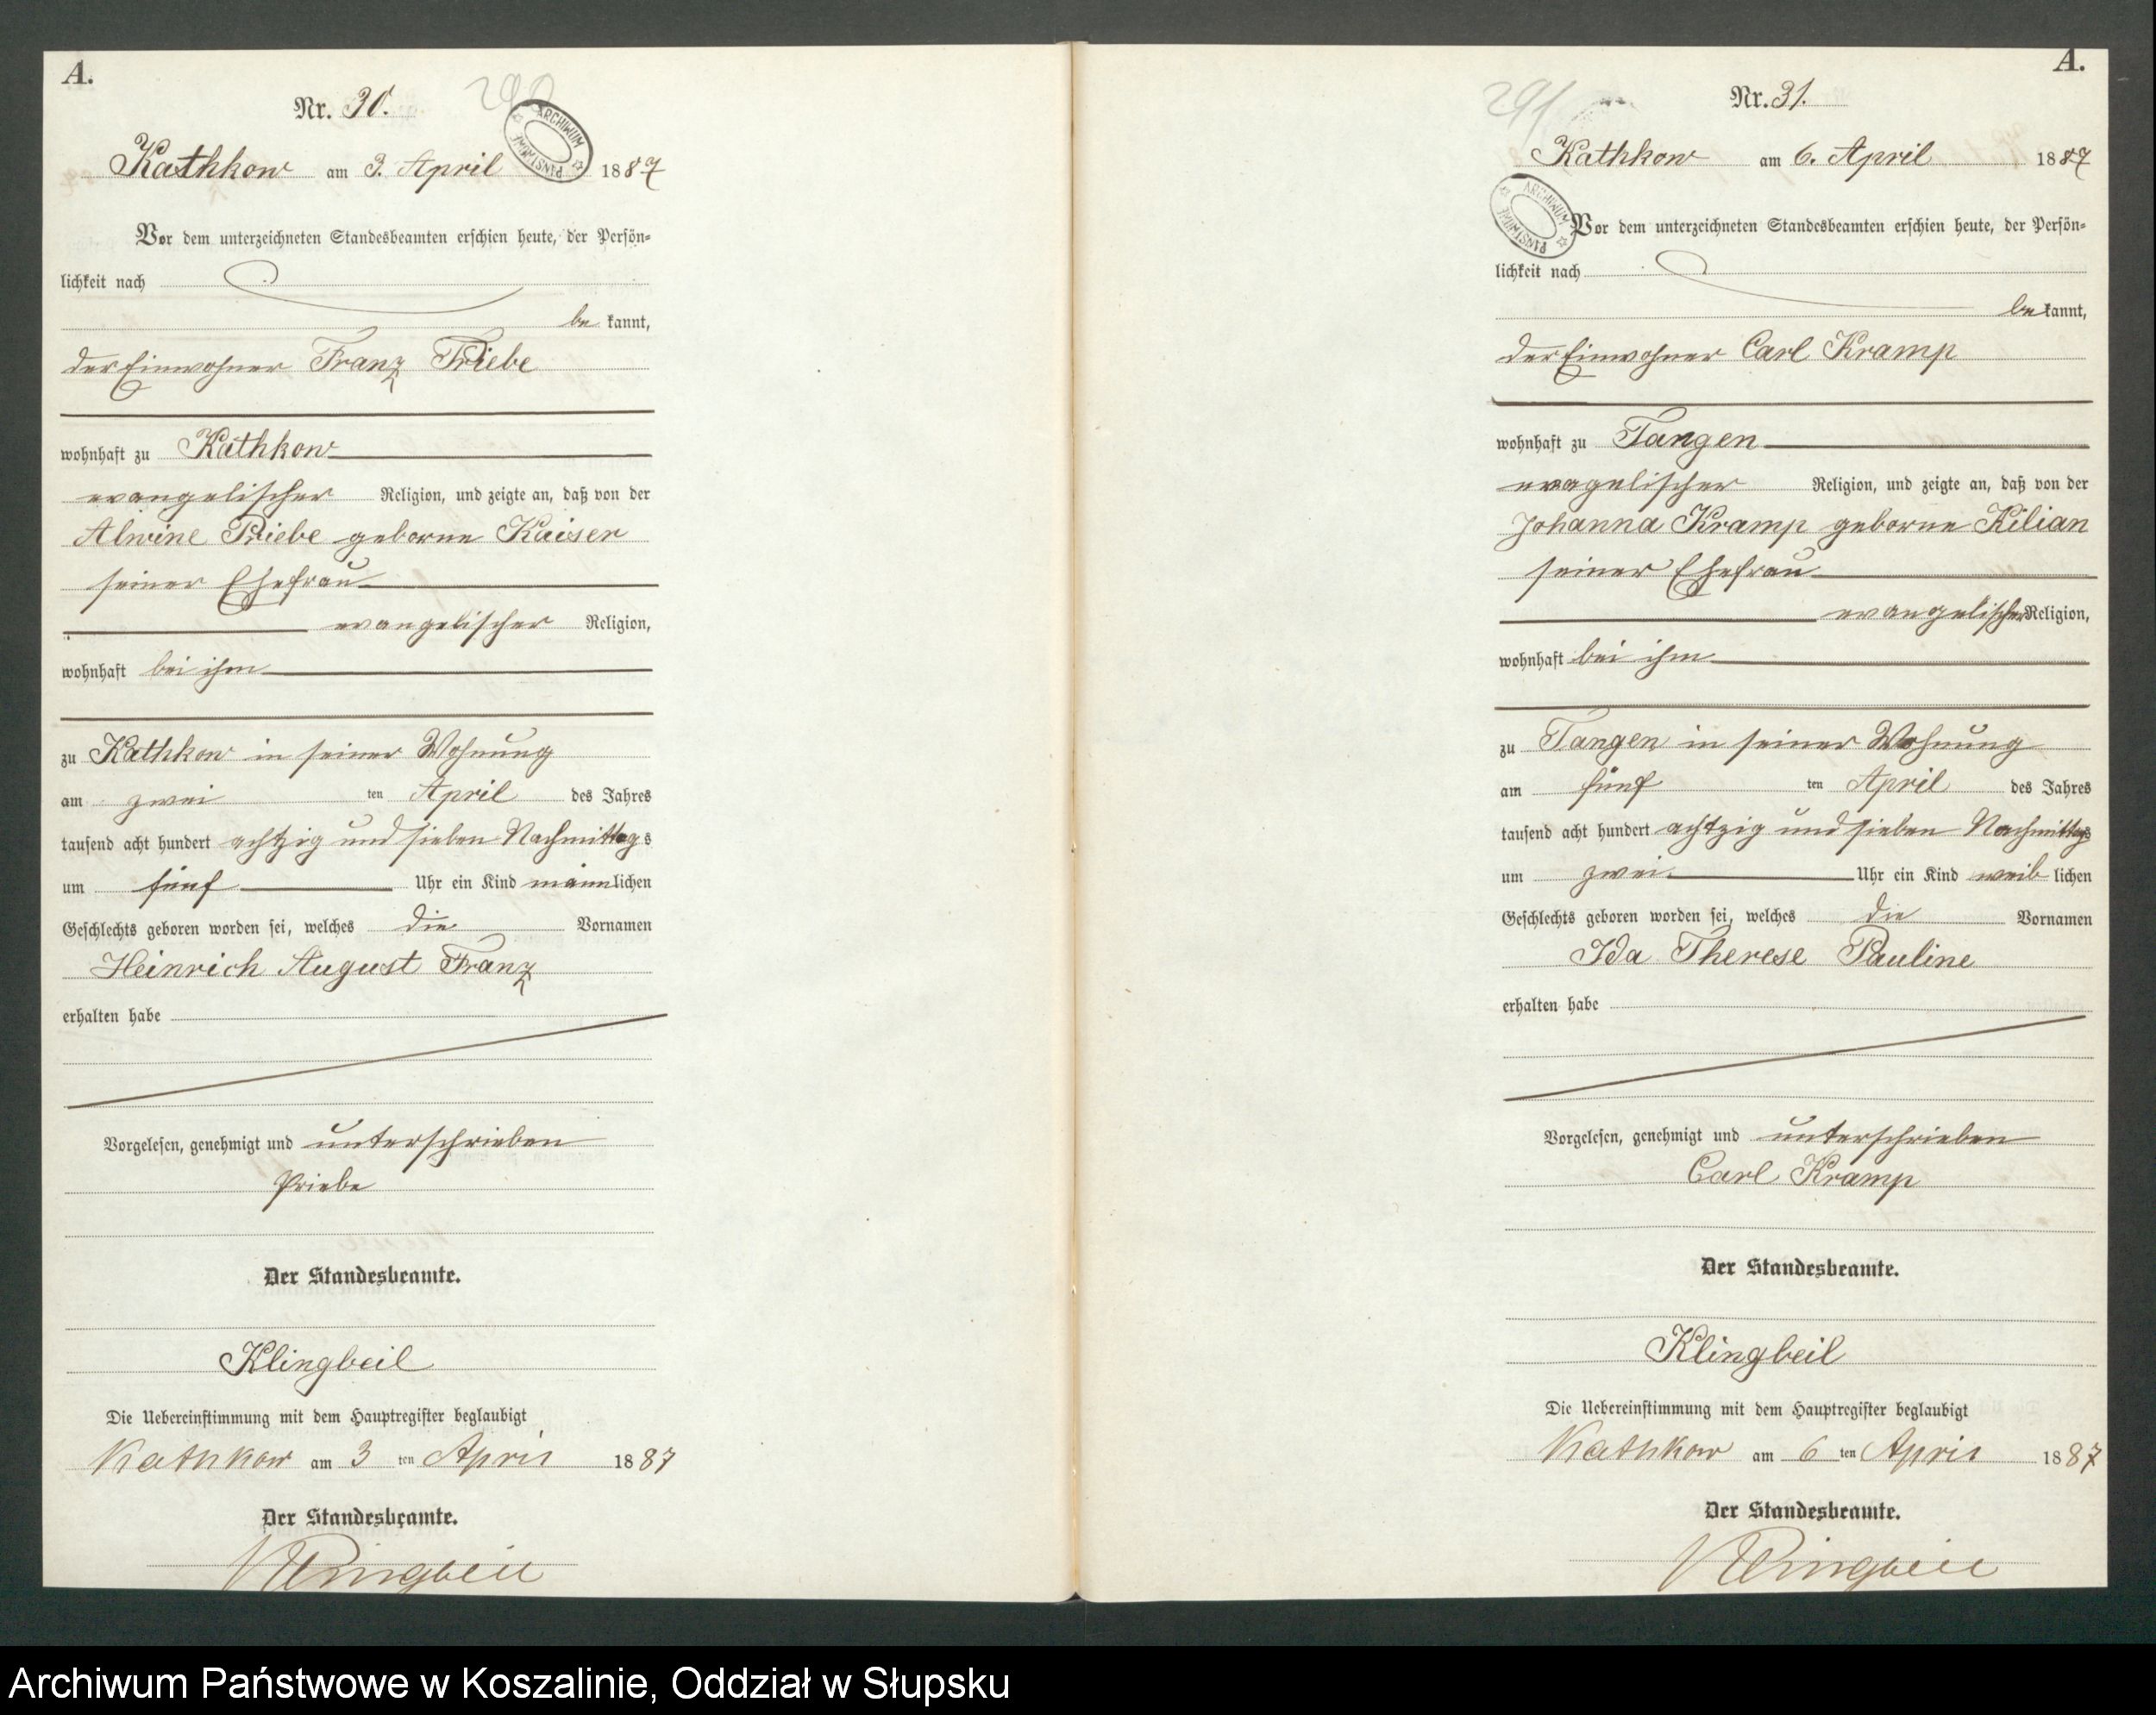 A.
Nr. 30.
290
ARCHIWUM PAŃSTWOWE
Kathkow am 3. April 1887
Vor dem unterzeichneten Standesbeamten erschien heute, der Persön-
lichkeit nach
be kannt,
der Einwohner Franz Priebe
wohnhaft zu Kathkow
evangelischer Religion, und zeigte an, daß von der
Alwine Priebe geborne Kaiser
seiner Ehefrau
evangelischer Religion,
wohnhaft bei ihm
zu Kathkow in seiner Wohnung
am zwei ten April des Jahres
tausend acht hundert achtzig und sieben Nachmittags
um fünf Uhr ein Kind männlichen
Geschlechts geboren worden sei, welches die Vornamen
Heinrich August Franz
erhalten habe
Vorgelesen, genehmigt und unterschrieben
Priebe
Der Standesbeamte.
Klingbeil
Die Uebereinstimmung mit dem Hauptregister beglaubigt
Kathkow am 3 ten April 1887
Der Standesbeamte.
Klingbeil
A.
Nr. 31.
291
Kathkow am 6. April 1887
ARCHIWUM PAŃSTWOWE
Vor dem unterzeichneten Standesbeamten erschien heute, der Persön-
lichkeit nach
be kannt,
der Einwohner Carl Kramp
wohnhaft zu Tangen
evagelischer Religion, und zeigte an, daß von der
Johanna Kramp geborne Kilian
seiner Ehefrau
evangelischer Religion,
wohnhaft bei ihm
zu Tangen in seiner Wohnung
am fünf ten April des Jahres
tausend acht hundert achtzig und sieben Nachmittags
um zwei Uhr ein Kind weib lichen
Geschlechts geboren worden sei, welches die Vornamen
Ida Therese Pauline
erhalten habe
Vorgelesen, genehmigt und unterschrieben
Carl Kramp
Der Standesbeamte.
Klingbeil
Die Uebereinstimmung mit dem Hauptregister beglaubigt
Kathkow am 6 ten April 1887
Der Standesbeamte.
Klingbeil
Archiwum Państwowe w Koszalinie, Oddział w Słupsku